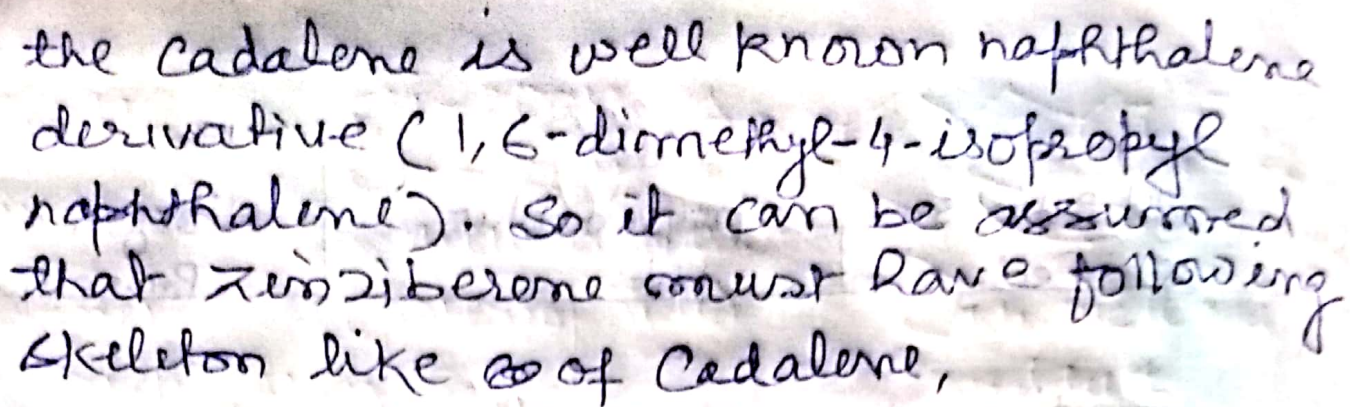 the cadalene is well known naphthalene
derivative (1,6-dimethyl-4-isopropyl
naphthalene). So it can be assumed
that zinziberene must have following
skeleton like of Cadalene,